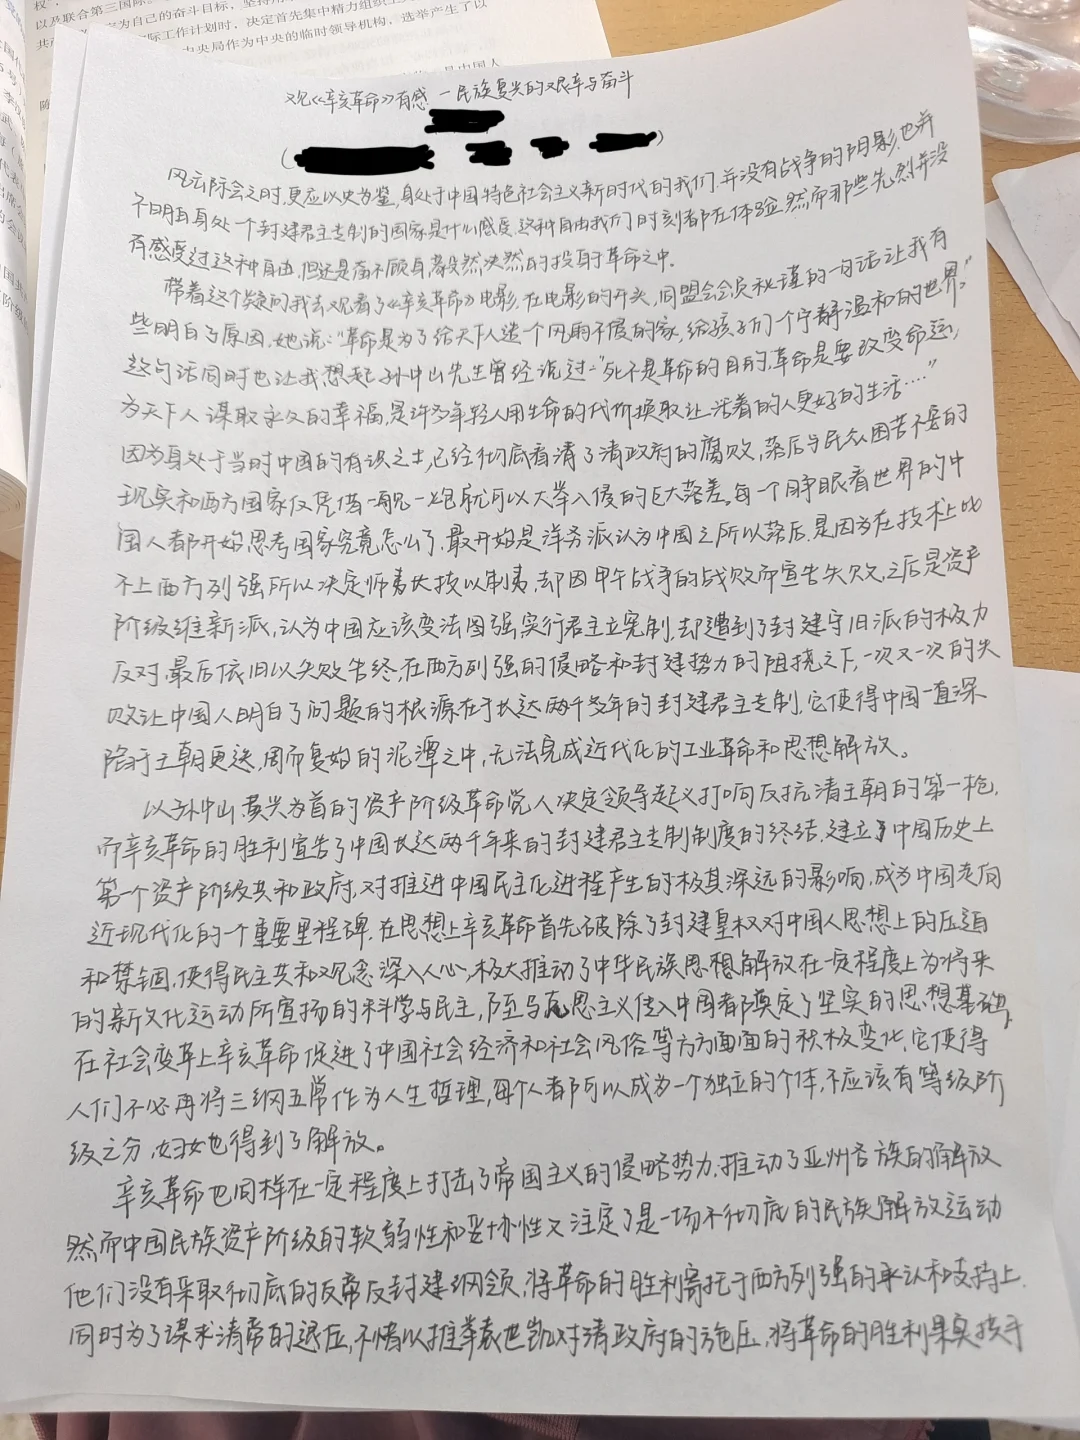 以及联合第三国际。
观《辛亥革命》有感 — 民族复兴的艰辛与奋斗
风云际会之时,更应以史为鉴,身处于中国特色社会主义新时代的我们,并没有战争的阴影,也并
不明白身处一个封建君主专制的国家是什么感受,这种自由我们时刻都在体验,然而那些先烈并没
有感受过这种自由,但还是奋不顾身,毅然决然的投身于革命之中。
带着这个疑问我去观看了《辛亥革命》电影,在电影的开头,同盟会会员秋瑾的一句话让我有
些明白了原因,她说:"革命是为了给天下人造一个风雨不侵的家,给孩子们一个宁静温和的世界。"
这句话同时也让我想起孙中山先生曾经说过:"死不是革命的目的,革命是要改变命运,
为天下人谋取永久的幸福,是许多年轻人用生命的代价换取让活着的人更好的生活……"
因为身处于当时中国的有识之士,已经彻底看清了清政府的腐败,落后与民众困苦不堪的
现实和西方国家仅凭借一舰一炮就可以大举入侵的巨大落差。每一个睁眼看世界的中
国人都开始思考国家究竟怎么了,最开始是洋务派认为中国之所以落后,是因为在技术上比
不上西方列强所以决定师夷长技以制夷,却因甲午战争的战败而宣告失败,之后是资产
阶级维新派,认为中国应该变法图强实行君主立宪制,却遭到了封建守旧派的极力
反对,最后依旧以失败告终,在西方列强的侵略和封建势力的阻挠之下,一次又一次的失
败让中国人明白了问题的根源在于长达两千多年的封建君主专制,它使得中国一直深
陷于王朝更迭,周而复始的泥潭之中,无法完成近代化的工业革命和思想解放。
以孙中山,黄兴为首的资产阶级革命党人决定领导起义打响反抗清王朝的第一枪,
而辛亥革命的胜利宣告了中国长达两千年来的封建君主专制制度的终结,建立了中国历史上
第一个资产阶级共和政府,对推进中国民主化进程产生的极其深远的影响,成为中国走向
近现代化的一个重要里程碑,在思想上辛亥革命首先破除了封建皇权对中国人思想上的压迫
和禁锢,使得民主共和观念深入人心,极大推动了中华民族思想解放在一定程度上为将来
的新文化运动所宣扬的科学与民主,随至马克思主义传入中国都奠定了坚实的思想基础,
在社会变革上辛亥革命促进了中国社会经济和社会风俗等方方面面的积极变化,它使得
人们不必再将三纲五常作为人生哲理,每个人都可以成为一个独立的个体,不应该有等级阶
级之分,妇女也得到了解放。
辛亥革命也同样在一定程度上打击了帝国主义的侵略势力,推动了亚州各族的解放
然而中国民族资产阶级的软弱性和妥协性又注定了是一场不彻底的民族解放运动
他们没有采取彻底的反帝反封建纲领,将革命的胜利寄托于西方列强的承认和支持上,
同时为了谋求清帝的退位,不惜以推举袁世凯对清政府的施压,将革命的胜利果臭拱于